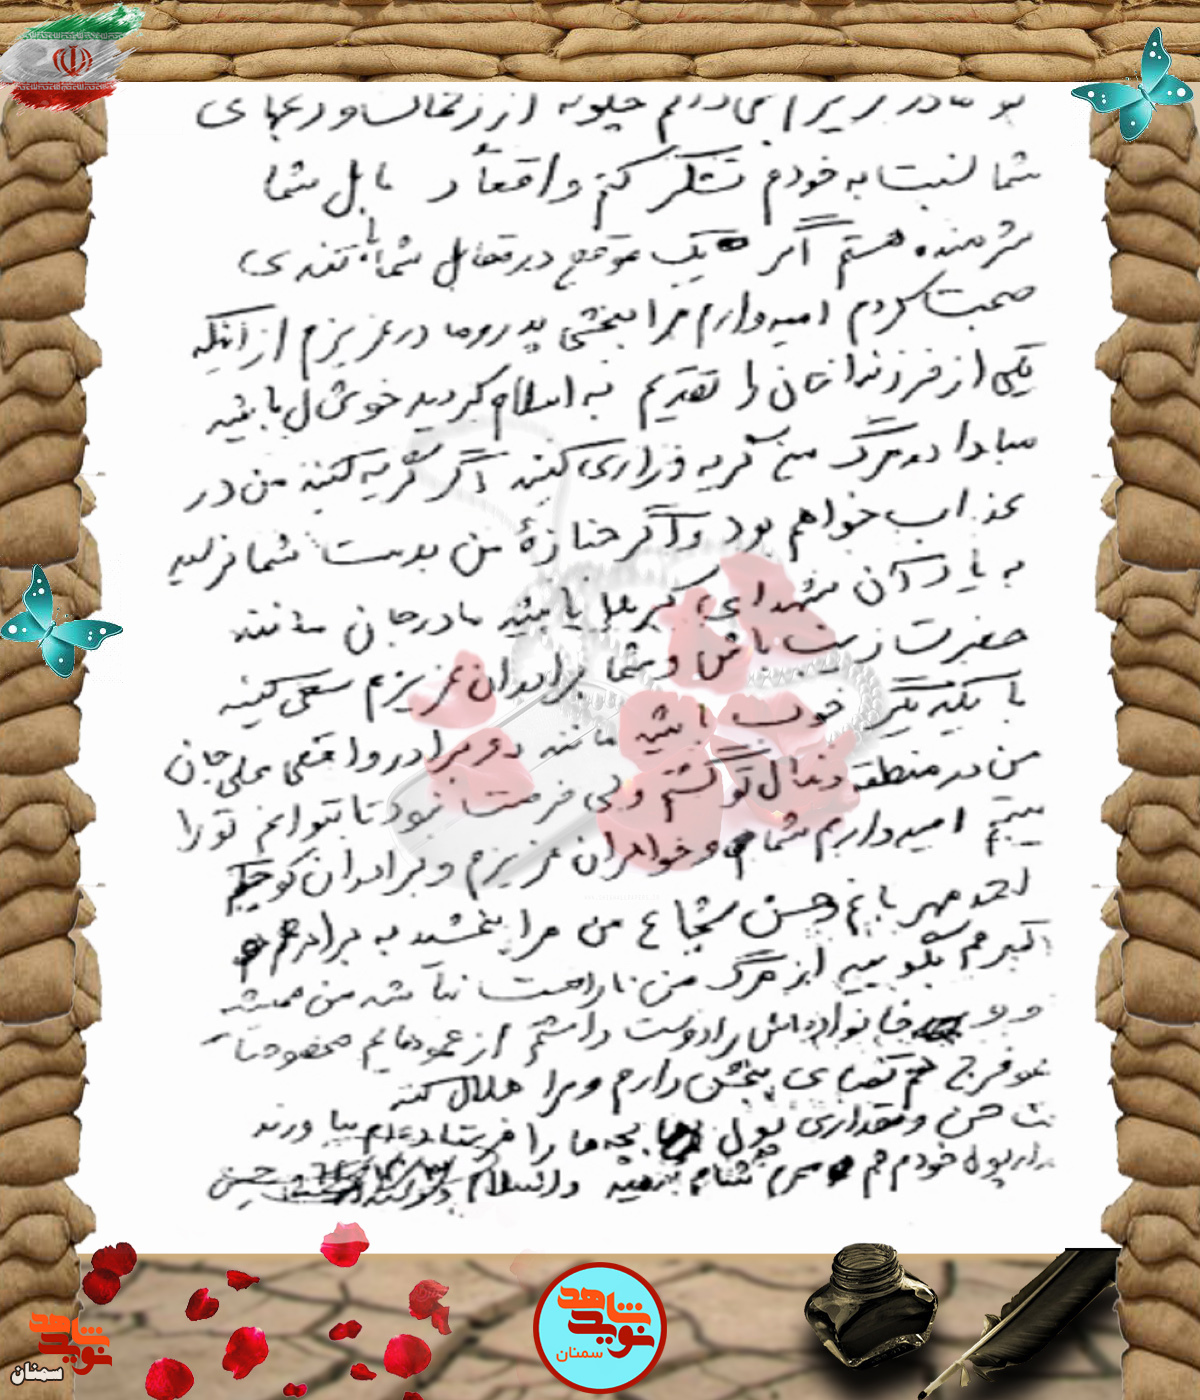 تو مادر عزیزم نمی‌دانم چگونه از زحمات و رنجهای
شما نسبت به خودم تشکر کنم واقعاً در مقابل شما
شرمنده هستم اگر یک موقع در مقابل شما با تندی
صحبت کردم امیدوارم مرا ببخشی پدر و مادر عزیزم از اینکه
یکی از فرزندانتان را تقدیم به اسلام کردید خوشحال باشید
مبادا در مرگ من گریه و زاری کنید اگر گریه کنید من در
عذاب خواهم بود و اگر جنازهٔ من بدست شما نرسید
به یاد آن شهدای کربلا باشید مادر جان مانند
حضرت زینب باش و شما برادران عزیزم سعی کنید
با یکدیگر خوب باشید مانند دو برادر واقعی علی جان
من در منطقه دنبال تو گشتم ولی فرصت نبود تا بتوانم تو را
ببینم امیدوارم شما و خواهران عزیزم و برادران کوچکم
احمد مهر باغ حسن شجاع من مرا ببخشید به برادرم
اکبر هم بگویید از مرگ من ناراحت نباشد من همیشه
خانواده‌اش را دوست داشتم از عموهایم مخصوصاً
عمو فرج هم تقاضای بخشش دارم و مرا حلال کند
و مقداری پول بچه‌ها را فرستاده‌ام بیاورند
پول خودم هم والسلام
نوید شاهد
سمنان
نوید شاهد
سمنان